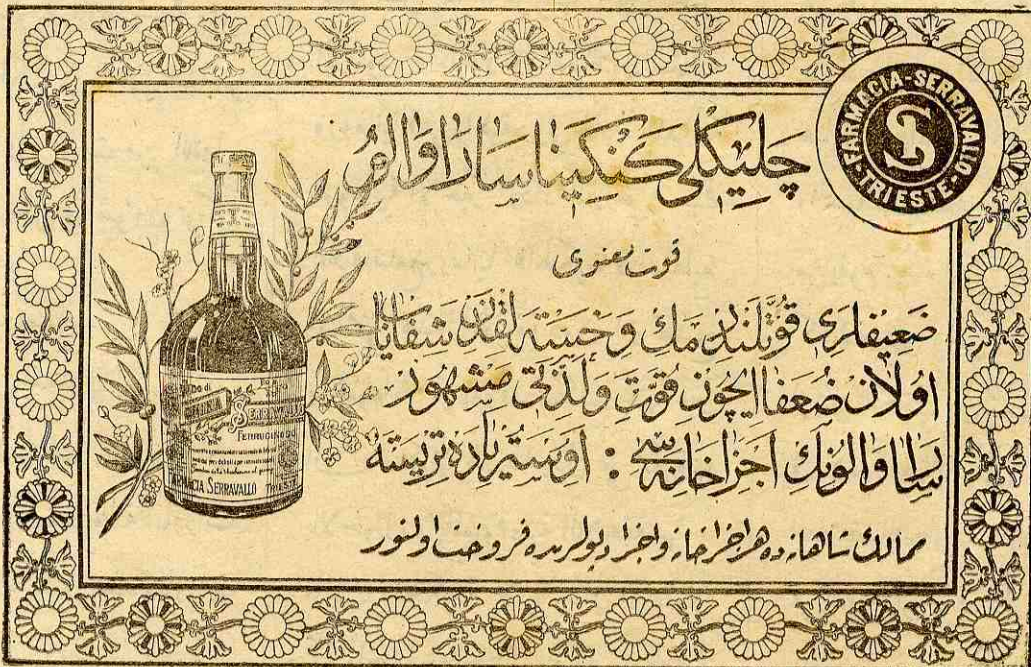 FARMACIA-SERRAVALLO
TRIESTE
چلیكلی كنكینا ساراوالو
قوت معنوی
ضعیفلری قوتلندیرمك وخسته لقدن شفایاب
اولان ضعفا ایچون قوت ولذتی مشهور
ساراوالونك اجزاخانه سی : اوستریاده تریسته
ممالك شاهانه ده هر اجزاخانه واجزا دپولرنده فروخت اولنور
SERRAVALLO
FERRUGINOSO
FARMACIA SERRAVALLO
TRIESTE